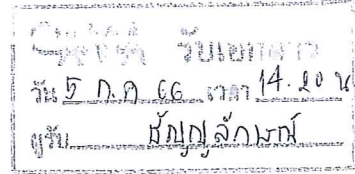 รับเอกสาร
วัน 5 ก.ค 66 เวลา 14.20 น
ผู้รับ ธัญญลักษณ์